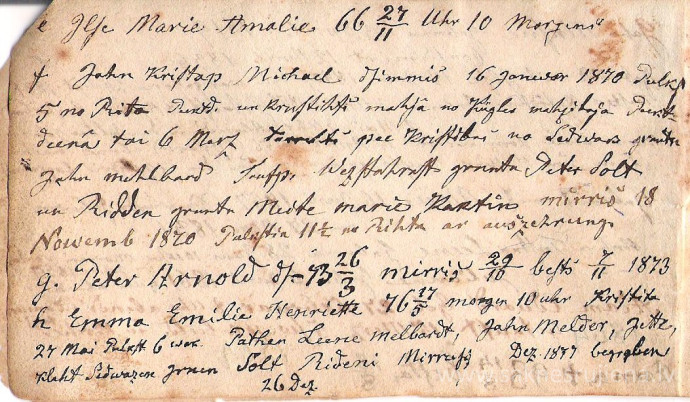 e Ilse Marie Amalie 66 27/11 Uhr 10 Morgens
f John Kristap Michael dsimmis 16 Januar 1870 Pulkst
5 no Rita un krustihts mahjâ no Kugles
deenâ tai 6 Merz pee Kristibas no Sedwar grunta
John mehlbard Taufp: Wezstahrast grunta Peter Solt
un Ridden grunta Medte marie Kartin mirris 18
Nowemb 1870 Pulkstin 11½ no Rihta ar auszehrung
g. Peter Arnold ds 73 26/3 mirris 29/10 bests 7/11 1873
h Emma Emilie Henriette 76 17/5 morgen 10 uhr Kristita
27 Mai Pulkst 6 wak. Pathen Leene melbardt, John Melder, Jette,
Sedwazen grunt Solt Rideni Mirrusi Dez 1877 begraben
26 Dez